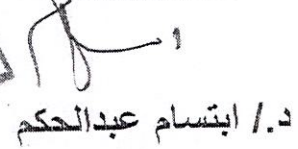 د./ ابتسام عبدالحكم